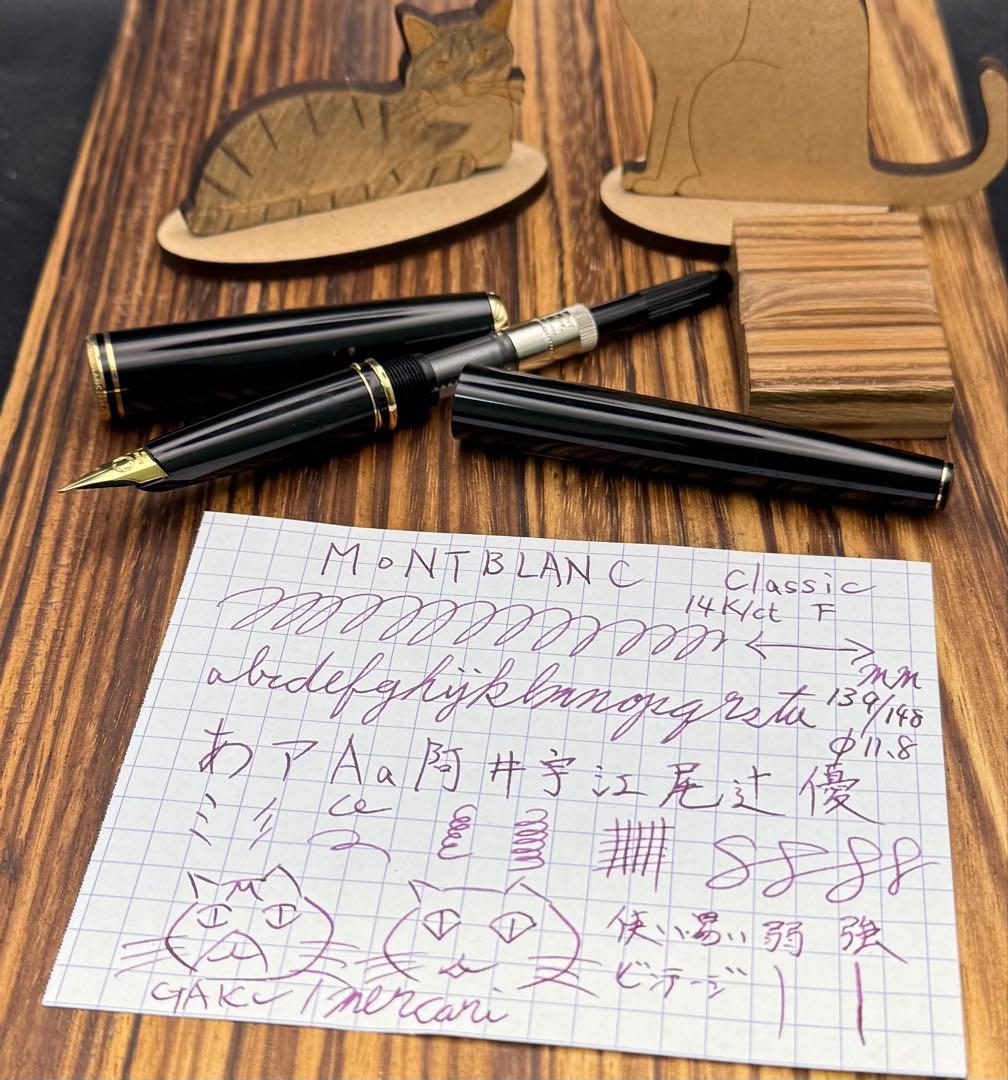 MoNTBLANC
Classic
14K/ct F
mm
abcdefghijklmnopqrstu
139/148
φ11.8
あアAa阿井宇江尾辻優
使い易い 弱 強
ビンテージ
GAKu / mercari